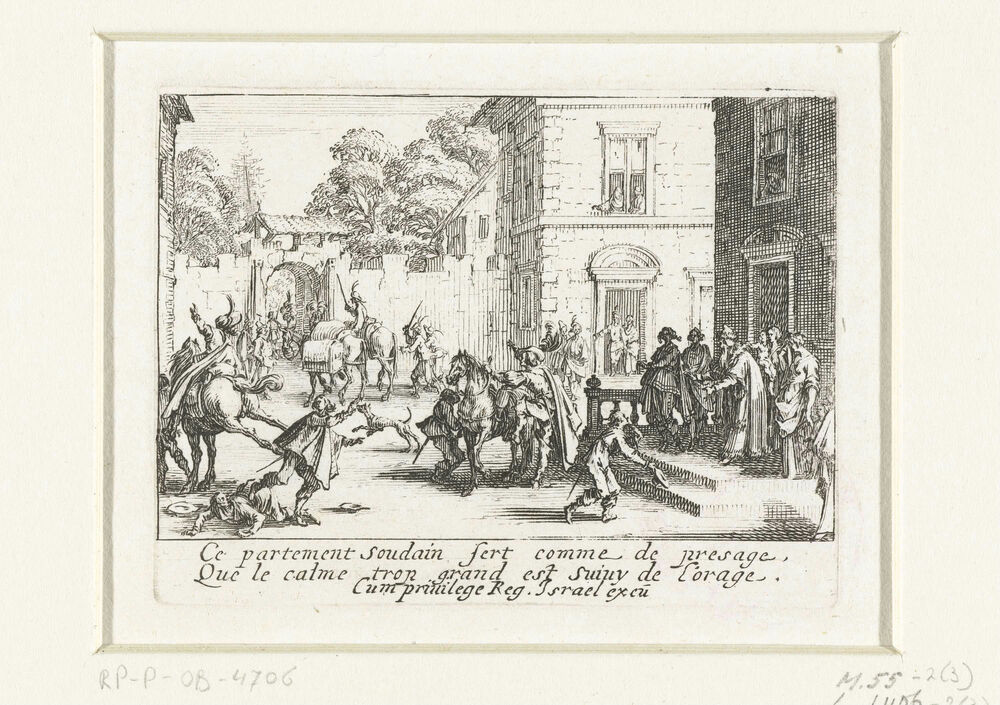 Ce partement soudain sert comme de presage,
Que le calme trop grand est suiuy de l'orage.
Cum priuilege Reg. Israel excu
RP-P-OB-4706
M.55-2(3)